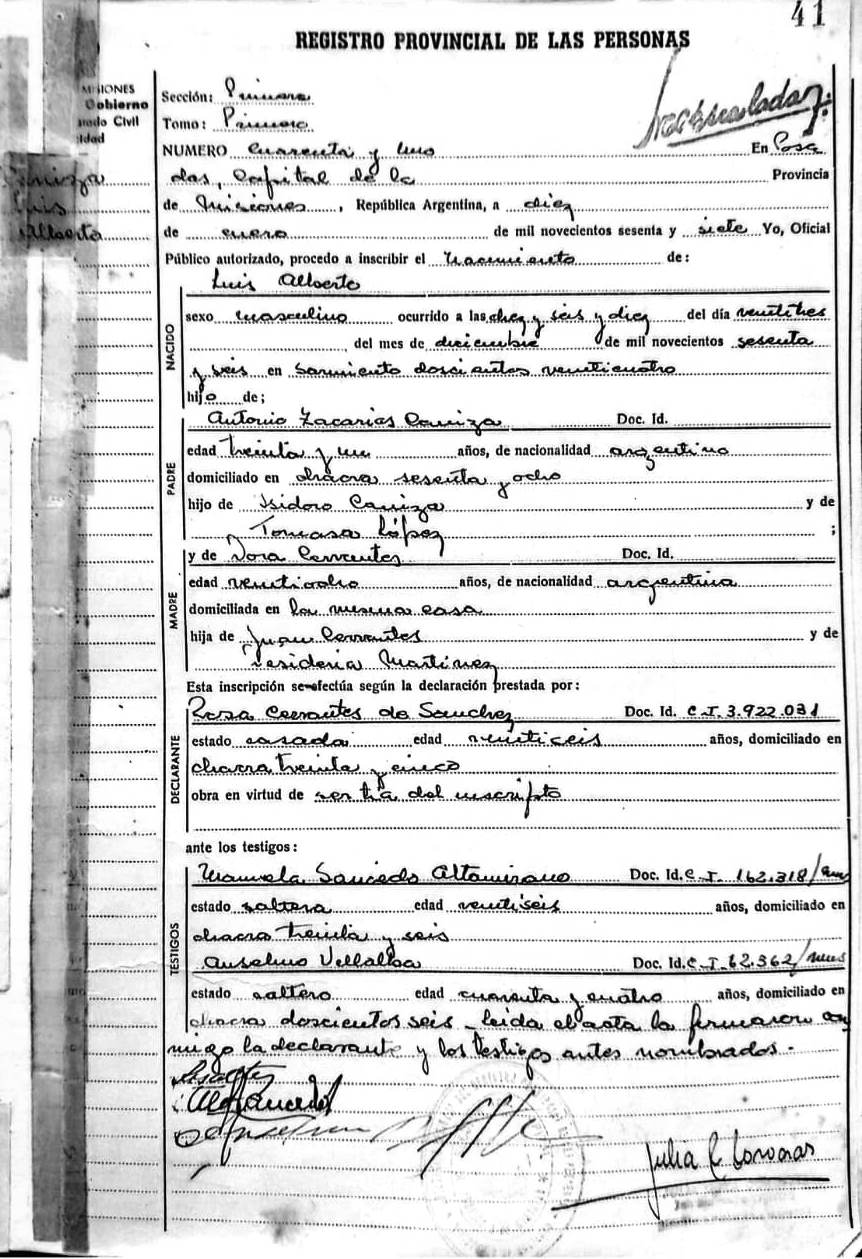 41
REGISTRO PROVINCIAL DE LAS PERSONAS
MISIONES
Gobierno
Civil
Caniza
Luis
Alberto
Sección: Primera
Tomo: Primero
NUMERO Cuarenta y Uno En Posa
das, Capital de la Provincia
de Misiones, República Argentina, a diez
de enero de mil novecientos sesenta y siete Yo, Oficial
Público autorizado, procedo a inscribir el Nacimiento de:
Luis Alberto
NACIDO
sexo masculino ocurrido a las diez y seis y diez del día veintitres
del mes de diciembre de mil novecientos sesenta
y seis en Sarmiento doscientos veinticuatro
hijo de;
PADRE
Antonio Zacarias Caniza Doc. Id.
edad treinta y un años, de nacionalidad argentino
domiciliado en chacra sesenta y ocho
hijo de Isidoro Caniza y de
Tomasa López ;
y de Dora Cervantes Doc. Id.
MADRE
edad ventiocho años, de nacionalidad argentina
domiciliada en la misma casa
hija de Juan Cervantes y de
Desideria Martinez
Esta inscripción se efectúa según la declaración prestada por:
DECLARANTE
Rosa Cervantes de Sanchez Doc. Id. C.I. 3.922.031
estado casada edad venticeis años, domiciliado en
chacra treinta y cinco
obra en virtud de ser tía del inscripto
ante los testigos:
TESTIGOS
Manuela Saucedo Altamirano Doc. Id. C.I. 162.318/
estado soltera edad ventiseis años, domiciliado en
chacra treinta y seis
Anselmo Villalba Doc. Id. C.I. 62.362/
estado soltero edad cuarenta y cuatro años, domiciliado en
chacra doscientos seis - leída el acta la firmaron con
migo la declarante y los testigos antes nombrados.-
Julia C